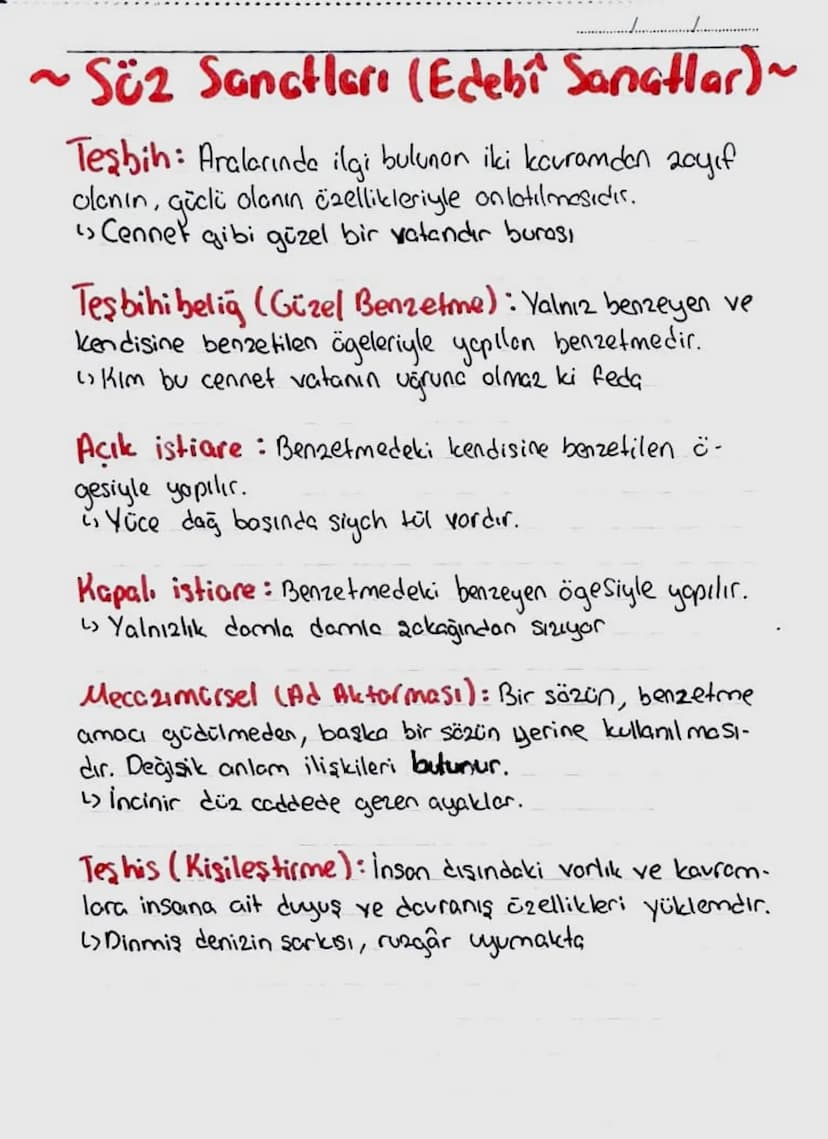 ~ Söz Sanatları (Edebî Sanatlar) ~
Teşbih: Aralarında ilgi bulunan iki kavramdan zayıf
olanın, güçlü olanın özellikleriyle anlatılmasıdır.
↳ Cennet gibi güzel bir vatandır burası
Teşbihibeliğ (Güzel Benzetme): Yalnız benzeyen ve
kendisine benzetilen ögeleriyle yapılan benzetmedir.
↳ Kim bu cennet vatanın uğruna olmaz ki feda
Açık istiare: Benzetmedeki kendisine benzetilen ö-
gesiyle yapılır.
↳ Yüce dağ başında siyah tül vardır.
Kapalı istiare: Benzetmedeki benzeyen ögesiyle yapılır.
↳ Yalnızlık damla damla sokağından sızıyor
Mecazımürsel (Ad Aktarması): Bir sözün, benzetme
amacı güdülmeden, başka bir sözün yerine kullanılması-
dır. Değişik anlam ilişkileri bulunur.
↳ İncinir düz caddede gezen ayaklar.
Teşhis (Kişileştirme): İnsan dışındaki varlık ve kavram-
lara insana ait duyuş ve davranış özellikleri yüklemdir.
↳ Dinmiş denizin şarkısı, rüzgâr uyumakta